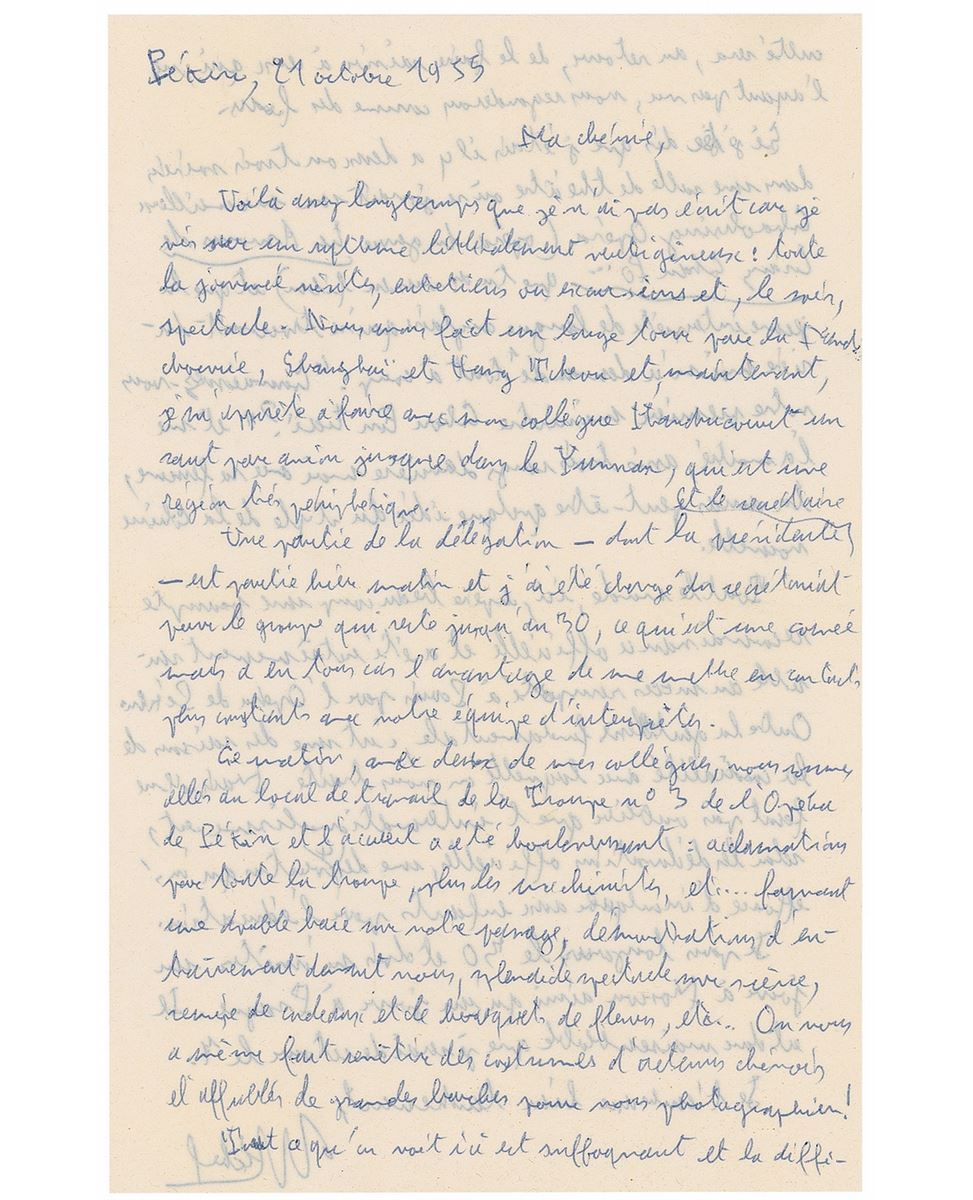 Pékin, 21 octobre 1955
Ma chérie,
Voilà assez longtemps que je n'ai pas écrit car je
vis sur un rythme littéralement vertigineux : toute
la journée visites, entretiens ou excursions et, le soir,
spectacle. Nous avons fait un large tour par la Mand-
chourie, Shanghaï et Hang Tcheou et, maintenant,
je m'apprête à faire avec mon collègue Haudricourt un
saut par avion jusque dans le Yunnan, qui est une
région très périphérique.
Une partie de la délégation — dont la présidente et le secrétaire
— est partie hier matin et j'ai été chargé du secrétariat
pour le groupe qui reste jusqu'au 30, ce qui est une corvée
mais a en tous cas l'avantage de me mettre en contacts
plus constants avec notre équipe d'interprètes.
Ce matin, avec deux de mes collègues, nous sommes
allés au local de travail de la Troupe n° 3 de l'Opéra
de Pékin et l'accueil a été bouleversant : acclamations
par toute la troupe, plus les machinistes, etc... formant
une double haie sur notre passage, démonstrations d'en-
traînement devant nous, splendide spectacle sur scène,
remise de cadeaux et de bouquets de fleurs, etc... On nous
a même fait revêtir des costumes d'acteurs chinois
et affublés de grandes barbes pour nous photographier !
Tout ce qu'on voit ici est suffoquant et la diffi-